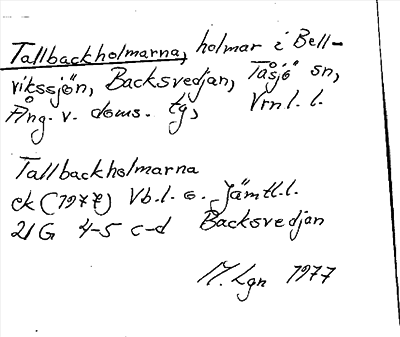 Tallbackholmarna, holmar i Bell-
vikssjön, Backsvedjan, Tåsjö sn,
Ång. v. doms. tg, Vrnl. l.
Tallbackholmarna
ek (1977) Vb.l. o. Jämtl.l.
21G 4-5 c-d Backsvedjan
M. Lgn 1977